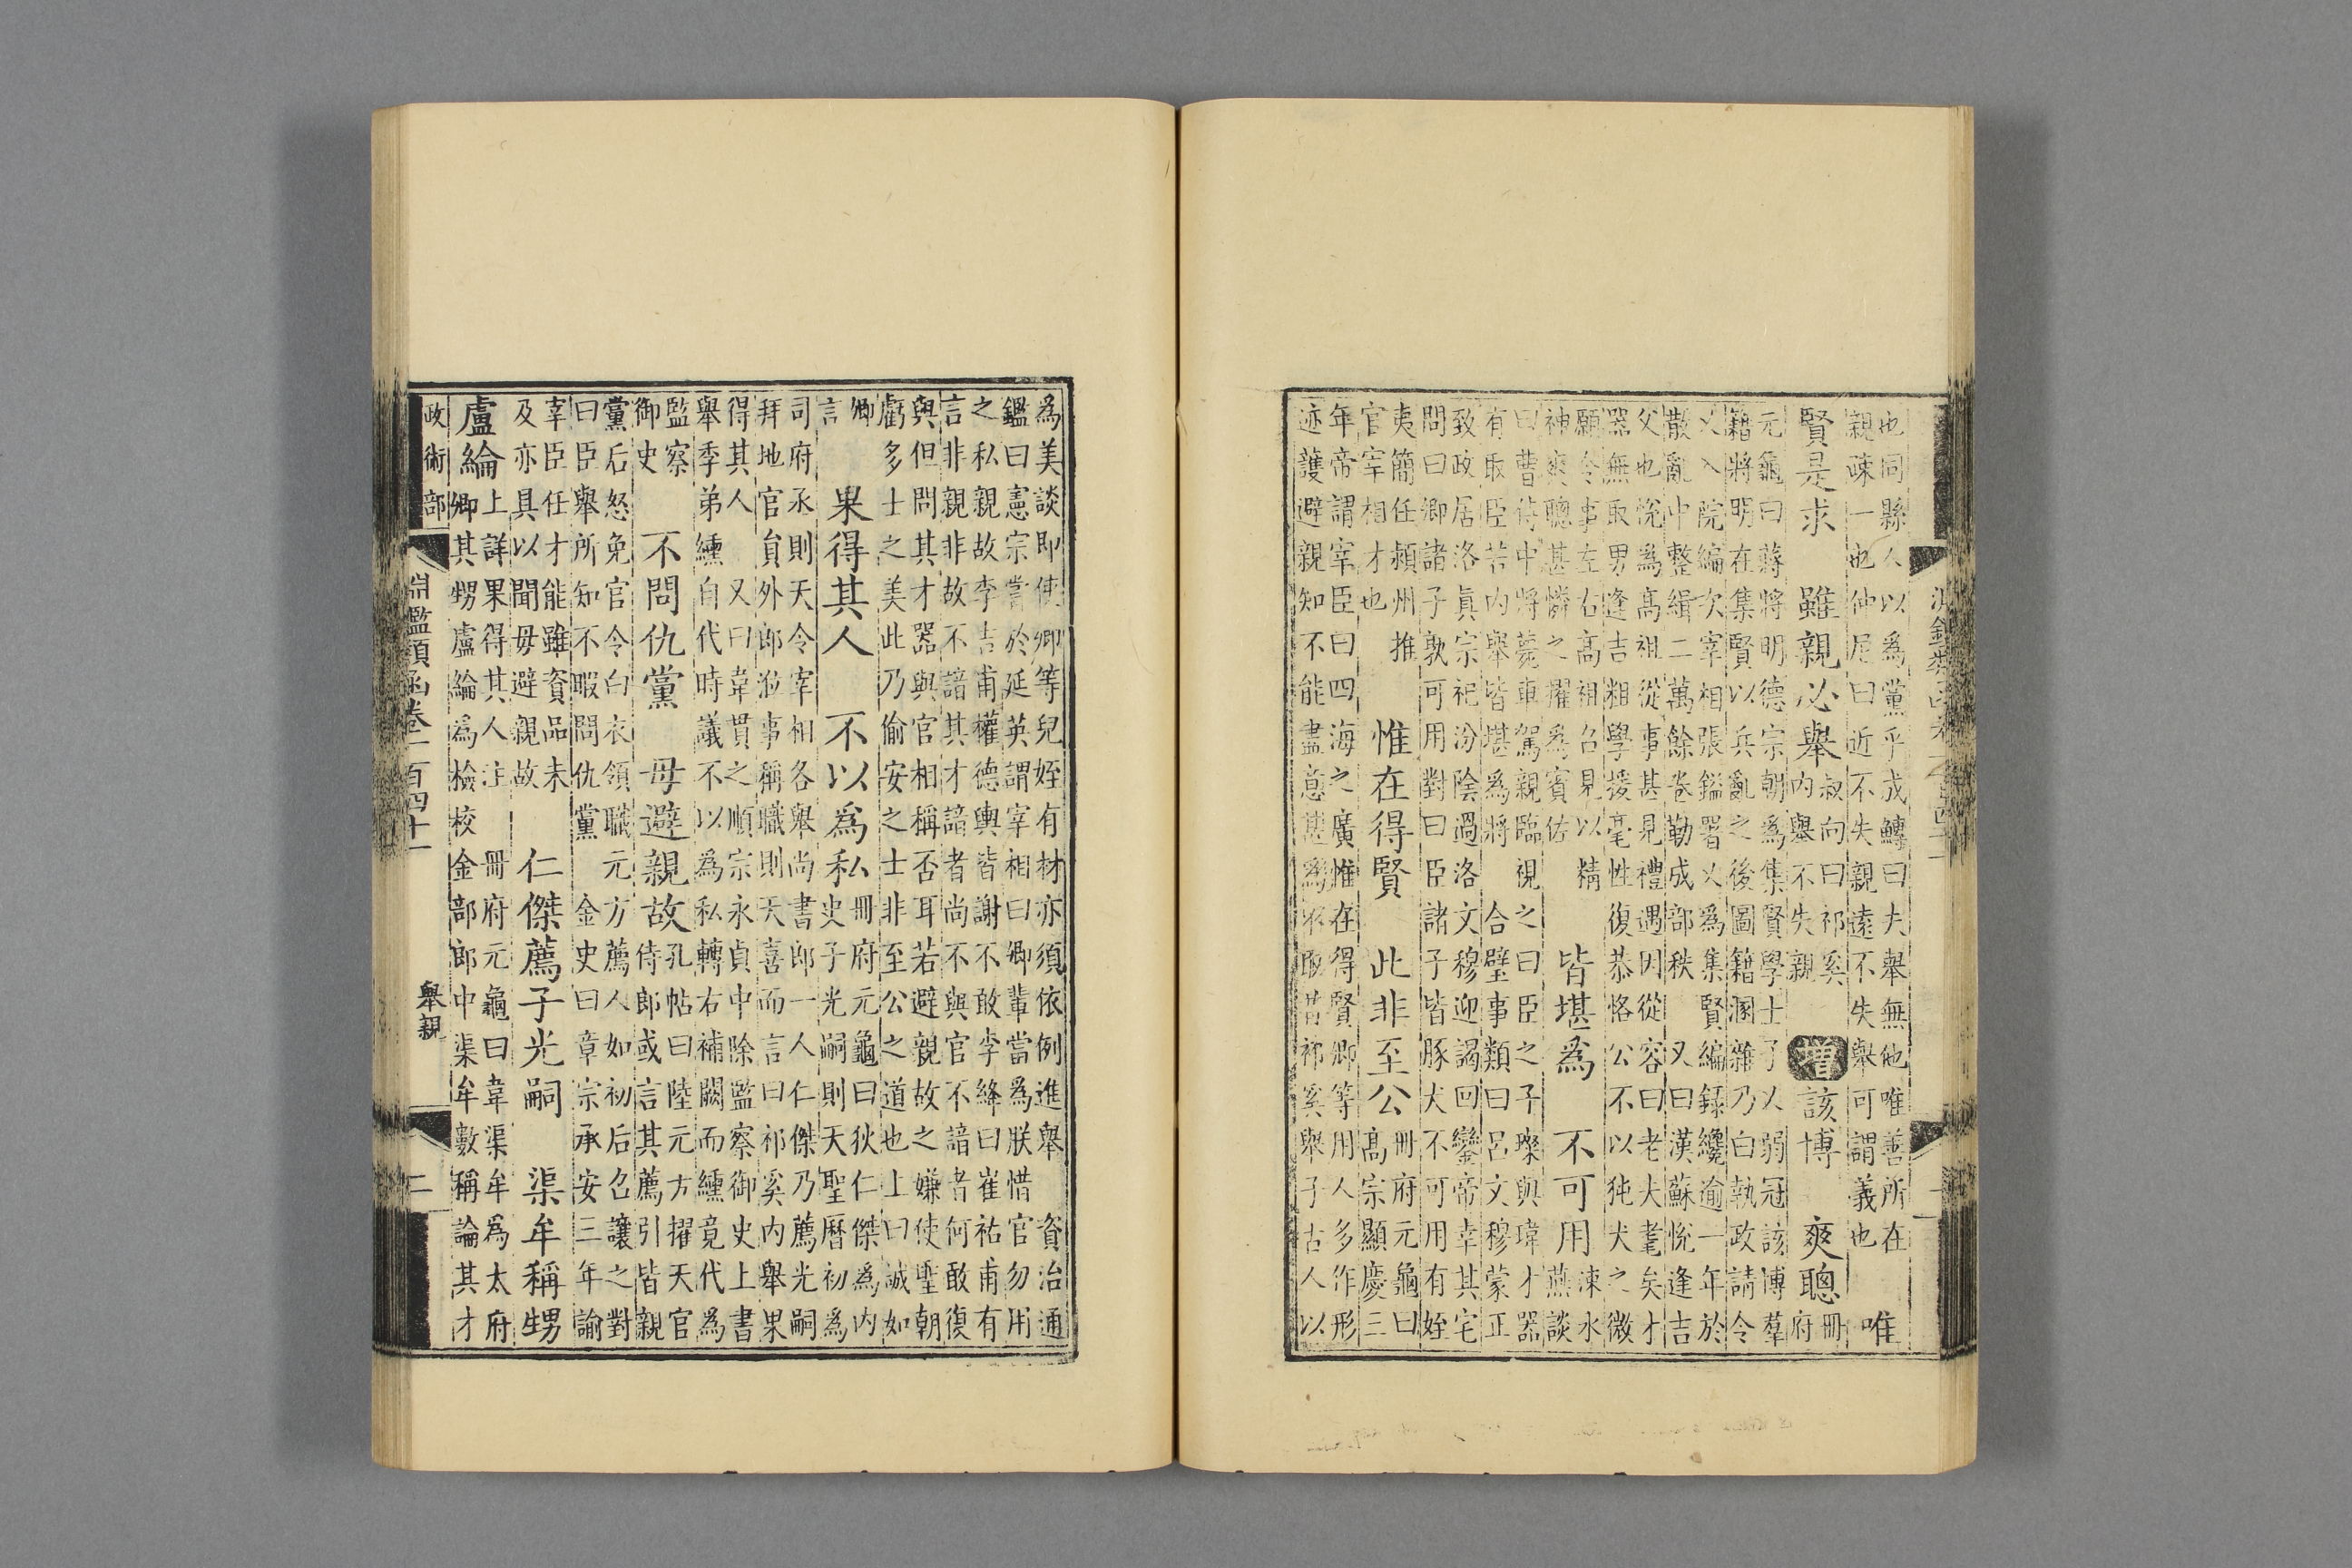 也同縣人以為黨乎成鱄曰夫舉無他唯善所在
親疎一也仲尼曰近不失親遠不失舉可謂義也
唯
賢是求 雖親必舉
叔向曰祁奚
内舉不失親
增 該博 爽聰
冊
府
元龜曰蔣將明德宗朝為集賢學士子乂弱冠該博羣
籍將明在集賢以兵亂之後圖籍溷雜乃白執政請令
乂入院編次宰相張鎰署乂為集賢編錄纔逾一年於
散亂中整緝二萬餘卷勒成部秩 又曰漢蘇悅逢吉
父也悅為高祖從事甚見禮遇因從容曰老夫耄矣才
器無取男逢吉粗學援毫性復恭恪公不以㹠犬之微
願令事左右高祖召見以精
神爽聰甚憐之擢為賓佐
皆堪為 不可用
涑水
燕談
曰曹侍中將薨車駕親臨視之曰臣之子璨與瑋才器
有取臣若内舉皆堪為將 合璧事類曰呂文穆蒙正
致政居洛真宗祀汾陰過洛文穆迎謁回鑾帝幸其宅
問曰卿諸子孰可用對曰臣諸子皆豚犬不可用有姪
夷簡任潁州推
官宰相才也
惟在得賢 此非至公
冊府元龜曰
高宗顯慶三
年帝謂宰臣曰四海之廣惟在得賢卿等用人多作形
迹護避親知不能盡意甚為不取昔祁奚舉子古人以
為美談即使卿等兒姪有材亦須依例進舉 資治通
鑑曰憲宗嘗於延英謂宰相曰卿輩當為朕惜官勿用
之私親故李吉甫權德輿皆謝不敢李絳曰崔祐甫有
言非親非故不諳其才諳者尚不與官不諳者何敢復
與但問其才器與官相稱否耳若避親故之嫌使聖朝
虧多士之美此乃偷安之士非至公之道也上曰誠如
卿
言
果得其人 不以為私
冊府元龜曰狄仁傑為内
史子光嗣則天聖曆初為
司府丞則天令宰相各舉尚書郎一人仁傑乃薦光嗣
拜地官員外郎涖事稱職則天喜而言曰祁奚内舉果
得其人 又曰韋貫之順宗永貞中除監察御史上書
舉季弟纁自代時議不以為私轉右補闕而纁竟代為
監察
御史
不問仇黨 毋避親故
孔帖曰陸元方擢天官
侍郎或言其薦引皆親
黨后怒免官令白衣領職元方薦人如初后召讓之對
曰臣舉所知不暇問仇黨 金史曰章宗承安三年諭
宰臣任才能雖資品未
及亦具以聞毋避親故
仁傑薦子光嗣 渠牟稱甥
盧綸
上詳果得其人注 冊府元龜曰韋渠牟為太府
卿其甥盧綸為檢校金部郎中渠牟數稱論其才
政術部 淵鑑類函卷一百四十一 舉親 二